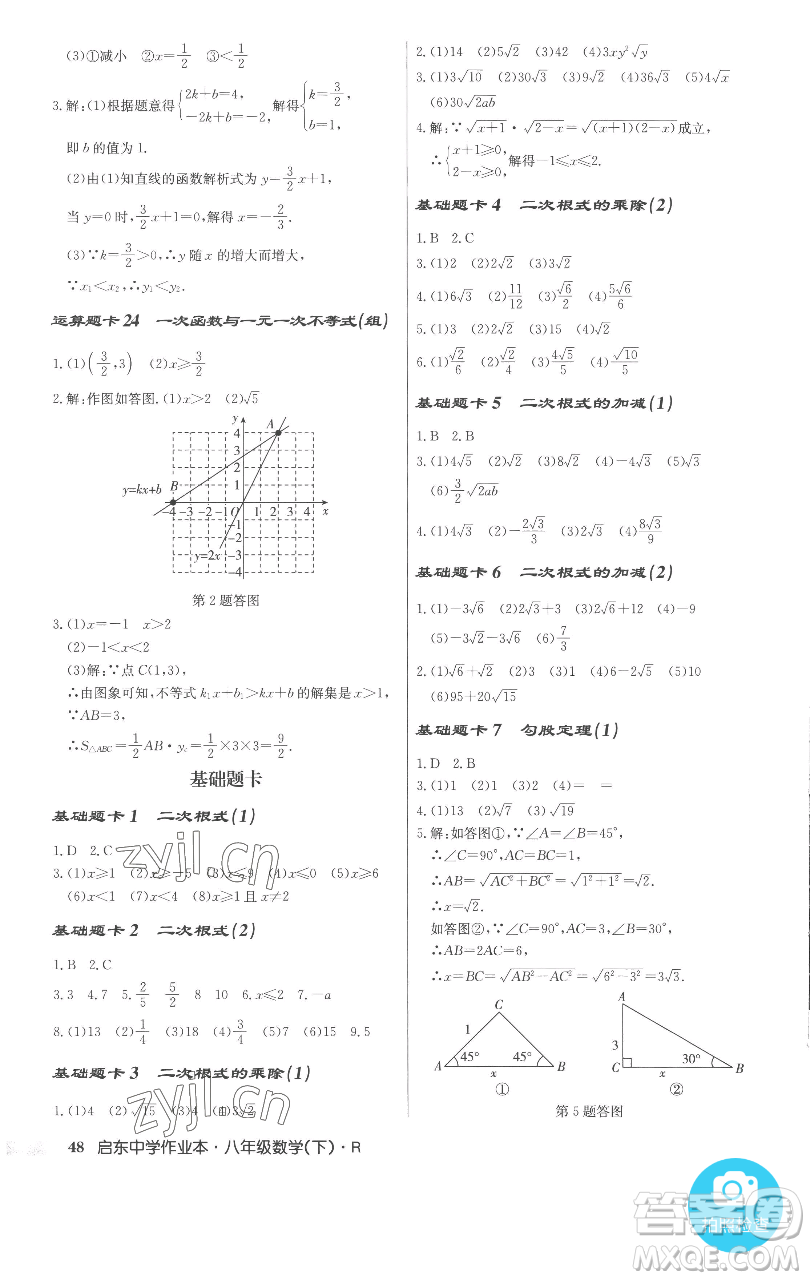 (3)①减小 ②x=1/2 ③<1/2
3.解:(1)根据题意得{2k+b=4, -2k+b=-2, 解得{k=3/2, b=1.
即b的值为1.
(2)由(1)知直线的函数解析式为y=3/2x+1,
当y=0时,3/2x+1=0,解得x=-2/3.
(3)∵k=3/2>0,∴y随x的增大而增大,
∵x₁<x₂,∴y₁<y₂.
运算题卡24 一次函数与一元一次不等式(组)
1.(1)(3/2,3) (2)x≥3/2
2.解:作图如答图.(1)x>2 (2)√5
y
A
4
3
2
1
y=kx+b B
-4 -3 -2 -1 O 1 2 3 4 x
-1
-2
y=2x -3
-4
第2题答图
3.(1)x=-1 x>2
(2)-1<x<2
(3)解:∵点C(1,3),
∴由图象可知,不等式k₁x+b₁>kx+b的解集是x>1,
∵AB=3,
∴S△ABC=1/2AB·yc=1/2×3×3=9/2.
基础题卡
基础题卡1 二次根式(1)
1.D 2.C
3.(1)x≥1 (2)x≥-5 (3)x≤9 (4)x≤0 (5)x≥6
(6)x<1 (7)x<4 (8)x≥1且x≠2
基础题卡2 二次根式(2)
1.B 2.C
3.3 4.7 5.2/5 5/2 8 10 6.x≤2 7.-a
8.(1)13 (2)1/4 (3)18 (4)3/4 (5)7 (6)5 9.5
基础题卡3 二次根式的乘除(1)
1.(1)4 (2)√15 (3)4 (4)3√2
48 启东中学作业本·八年级数学(下)·R
2.(1)14 (2)5√2 (3)42 (4)3xy²√y
3.(1)3√10 (2)30√3 (3)9√2 (4)36 (5)4√x
(6)30√2ab
4.解:∵√x+1·√2-x=√(x+1)(2-x)成立,
∴{x+1≥0, 2-x≥0, 解得-1≤x≤2.
基础题卡4 二次根式的乘除(2)
1.B 2.C
3.(1)2 (2)2√2 (3)2 (4)2
4.(1)6√3 (2)11/12 (3)√6/2 (4)5√6/6
5.(1)3 (2)2√3 (3)15 (4)√3
6.(1)√2/6 (2)√2/4 (3)4√5/5 (4)√10/5
基础题卡5 二次根式的加减(1)
1.B 2.B
3.(1)4√5 (2)√2 (3)8√2 (4)-√2 (5)3√3
(6)3/2√2ab
4.(1)4√3 (2)-2√3/3 (3)5√2 (4)8√3/9
基础题卡6 二次根式的加减(2)
1.(1)-3√6 (2)2√3+3 (3)2√6+12 (4)-9
(5)-3√2-3√6 (6)7/3
2.(1)√6+√2 (2)23 (3)1 (4)2 (5)-2
(6)95+20√15
基础题卡7 勾股定理(1)
1.D 2.B
3.(1)1 (2)1 (3)2 (4)= =
4.(1)13 (2)√7 (3)√19
5.解:如答图①,∵∠A=∠B=45°,
∴∠C=90°,AC=BC=1,
∴AB=√AC²+BC²=√1²+1²=√2.
∴x=√2.
如答图②,∵∠C=90°,AC=3,∠B=30°,
∴AB=2AC=6,
∴x=BC=√AB²-AC²=√6²-3²=3√3.
C
1
A 45° 45° B
x
①
A
3
C 30° B
x
②
第5题答图
zyjl.cn
zyjl.cn
答案卷
拍照检查
MXQE.COM